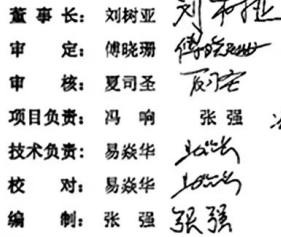 董事长：刘树亚 刘树亚
审 定：傅晓珊 傅晓珊
审 核：夏司圣
项目负责：冯 响 张 强
技术负责：易焱华
校 对：易焱华
编 制：张 强 张强